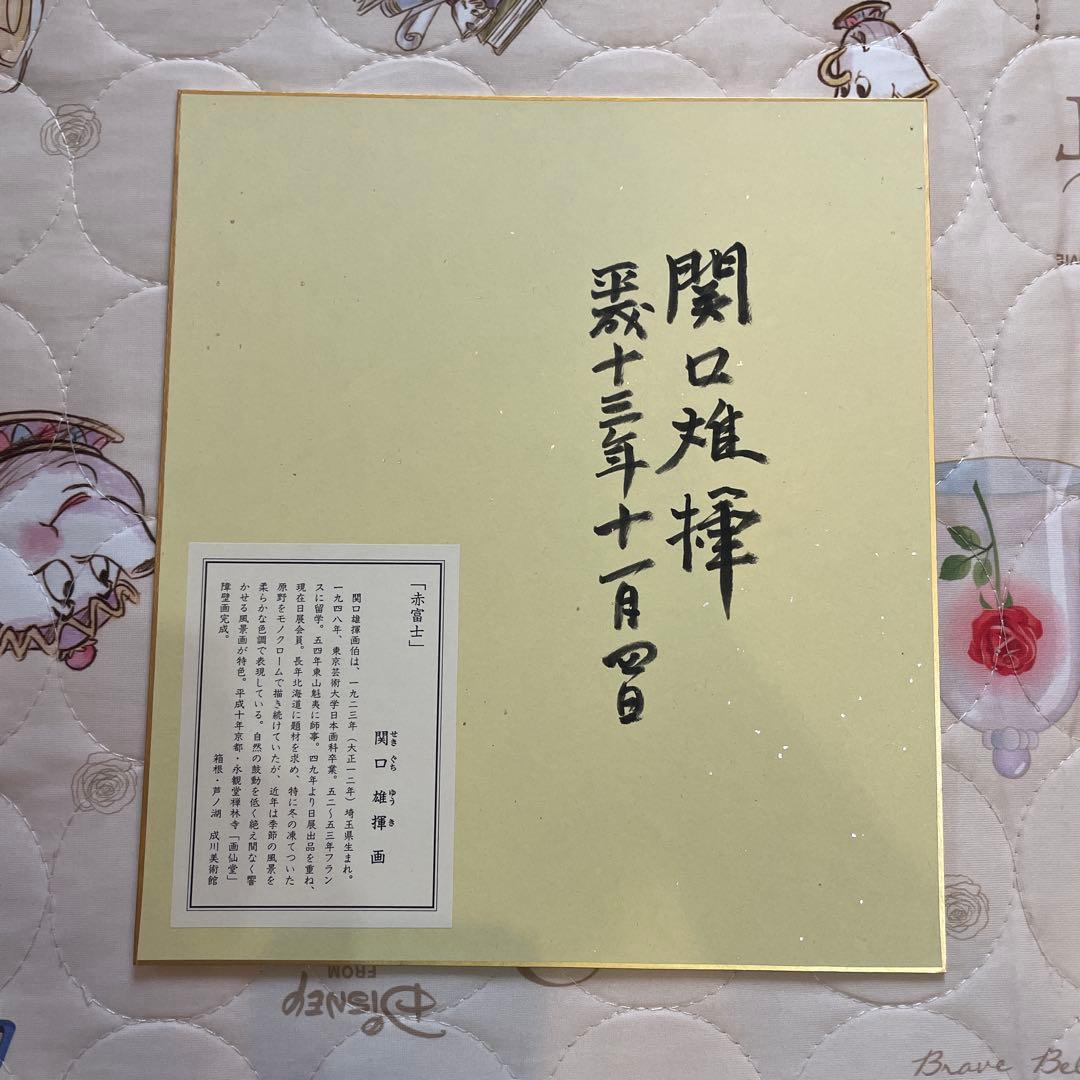 関口雄揮
平成十三年十一月四日
「赤富士」
せきぐちゆうき
関口雄揮 画
関口雄揮画伯は、一九二三年（大正一二年）埼玉県生まれ。
一九四八年、東京芸術大学日本画科卒業。五二～五三年フラン
スに留学。五四年東山魁夷に師事。四九年より日展出品を重ね、
現在日展会員。長年北海道に題材を求め、特に冬の凍てついた
原野をモノクロームで描き続けていたが、近年は季節の風景を
柔らかな色調で表現している。自然の鼓動を低く絶え間なく響
かせる風景画が特色。平成十年京都・永観堂禅林寺「画仙堂」
障壁画完成。
箱根・芦ノ湖 成川美術館
DISNEY
FROM
Brave Bel